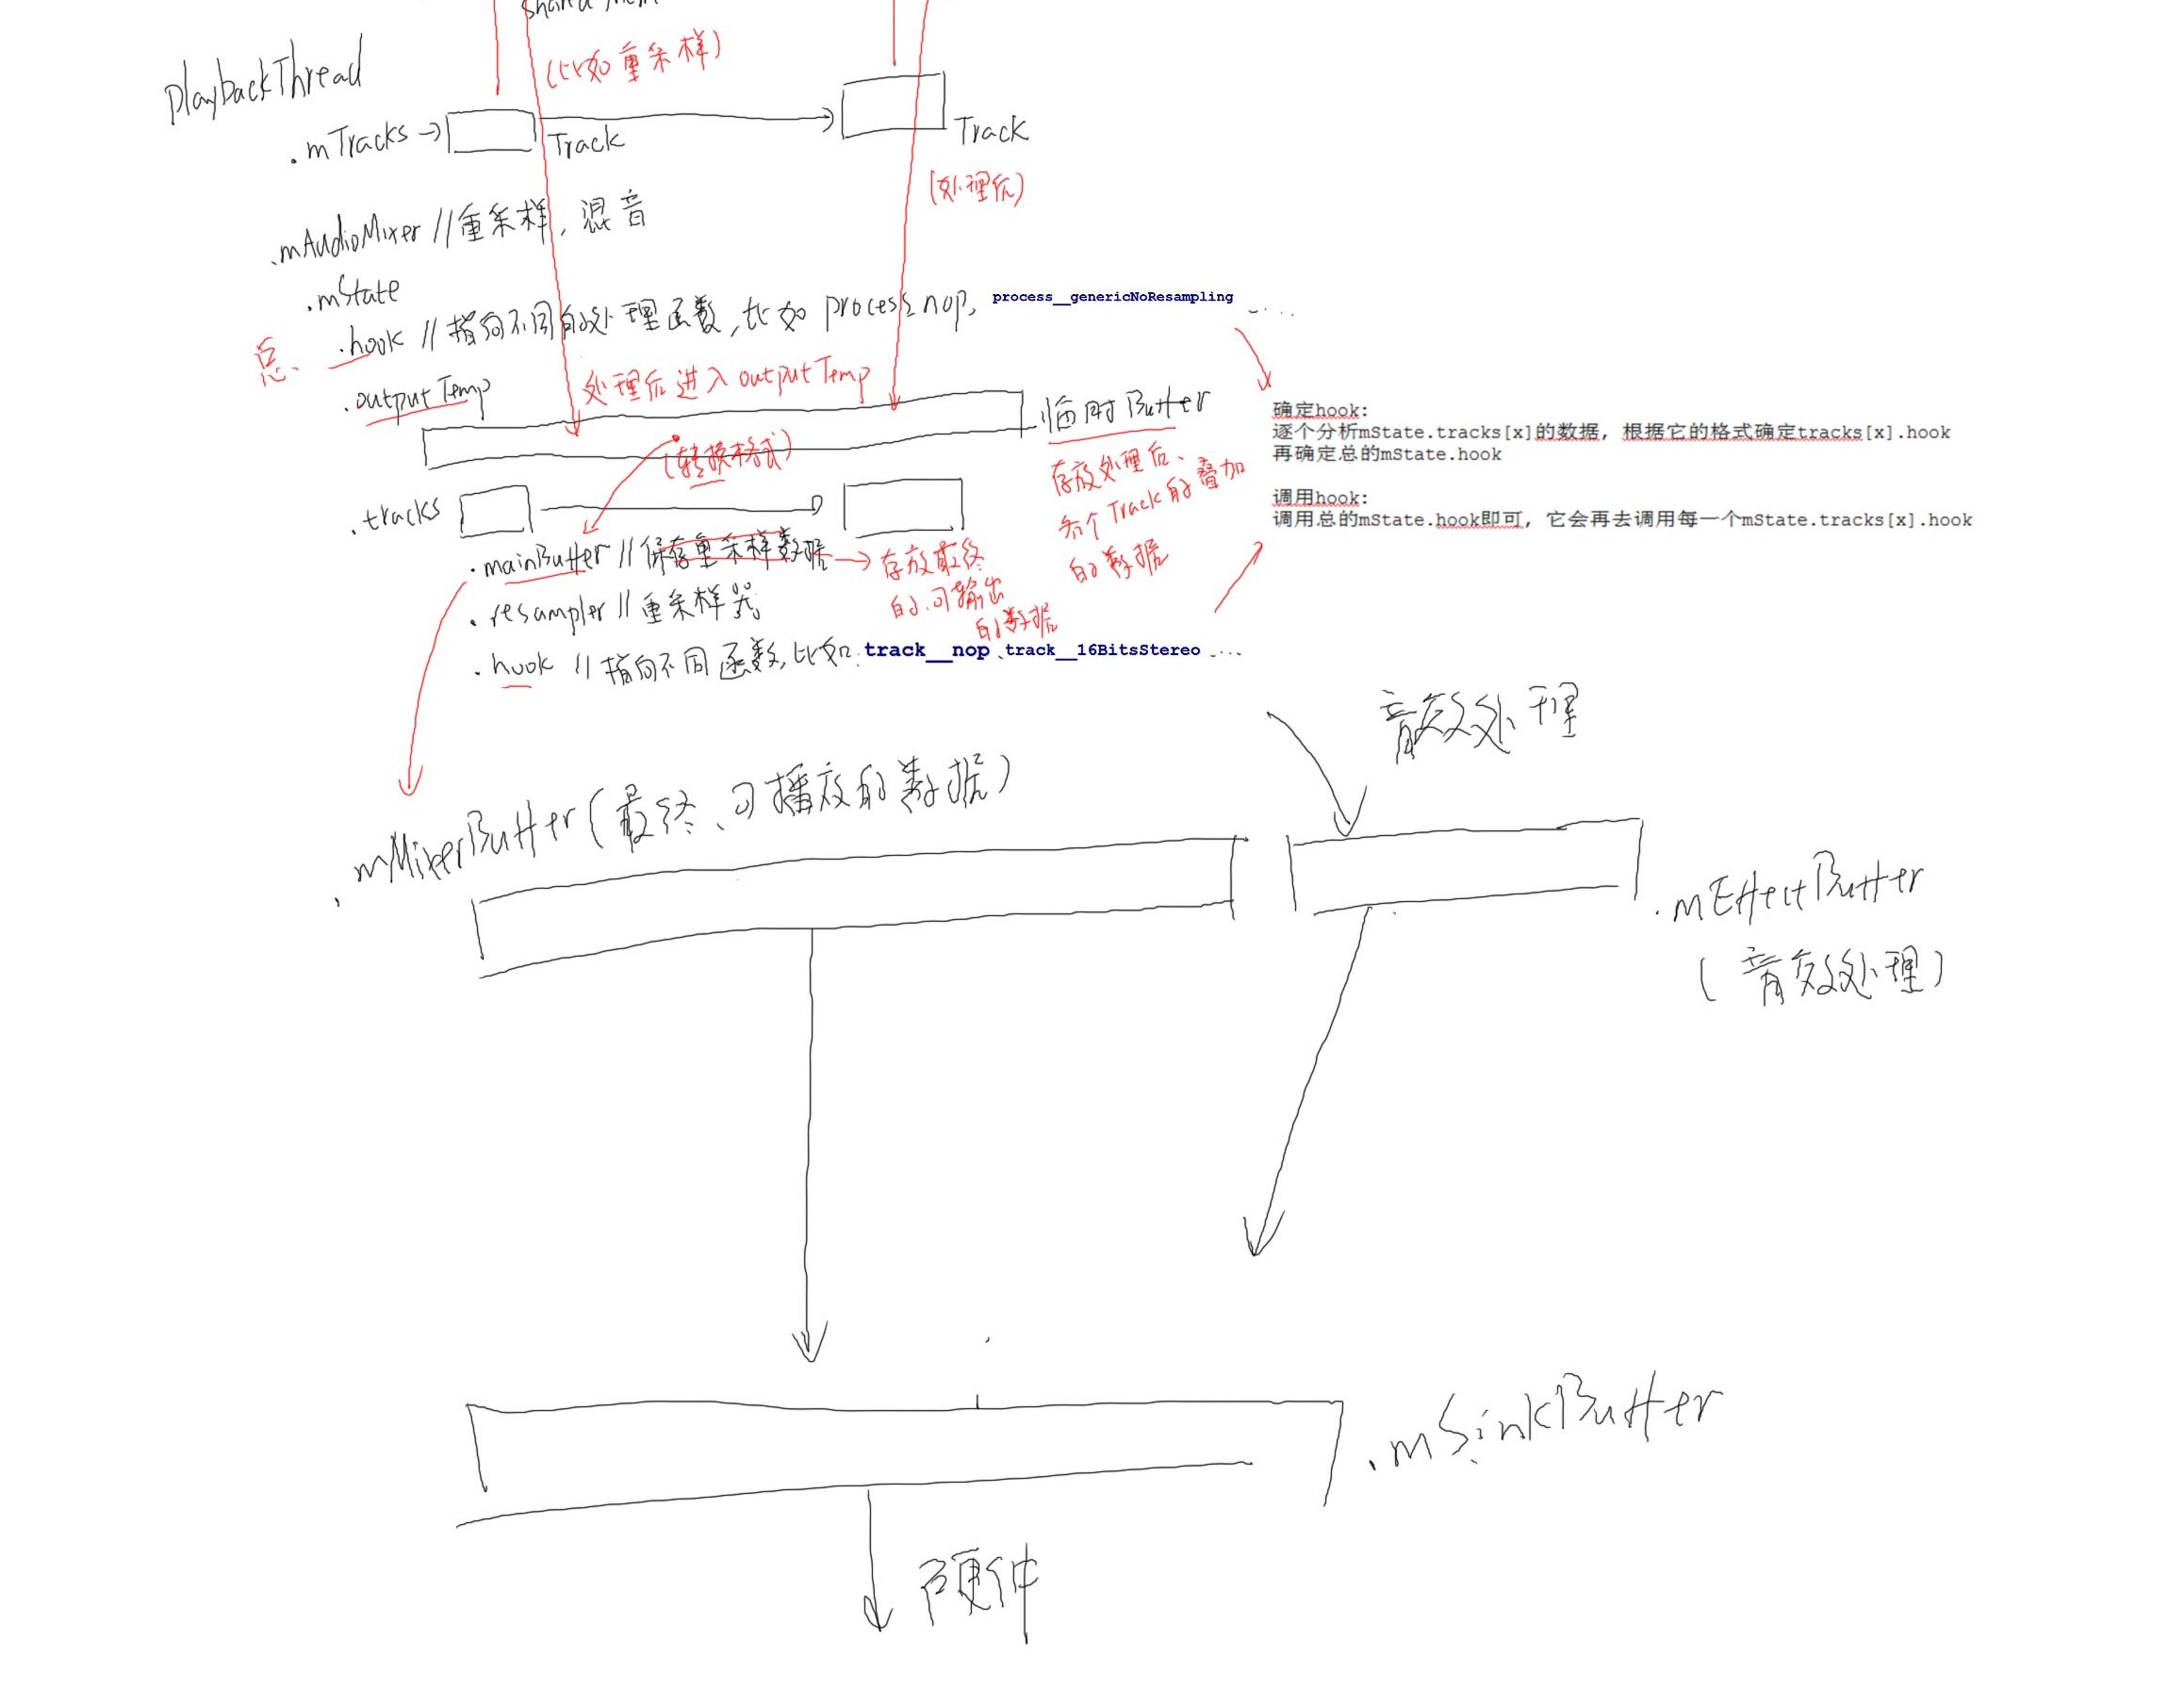 (比如重采样)
PlaybackThread
.mTracks → Track
Track
(处理后)
.mAudioMixer //重采样, 混音
.mState
总、 .hook //指向不同的处理函数, 比如 process_nop, process__genericNoResampling .....
.outputTemp
处理后进入 outputTemp
临时Buffer
(转换格式)
存放处理后、
各个Track的叠加
的数据
确定hook:
逐个分析mState.tracks[x]的数据，根据它的格式确定tracks[x].hook
再确定总的mState.hook
调用hook:
调用总的mState.hook即可，它会再去调用每一个mState.tracks[x].hook
.tracks
.mainBuffer //保存重采样数据 → 存放最终
的、可输出
的数据
.resampler //重采样器
.hook //指向不同函数, 比如: track__nop、track__16BitsStereo ....
音效处理
.mMixerBuffer (最终、可播放的数据)
.mEffectBuffer
(音效处理)
.mSinkBuffer
硬件